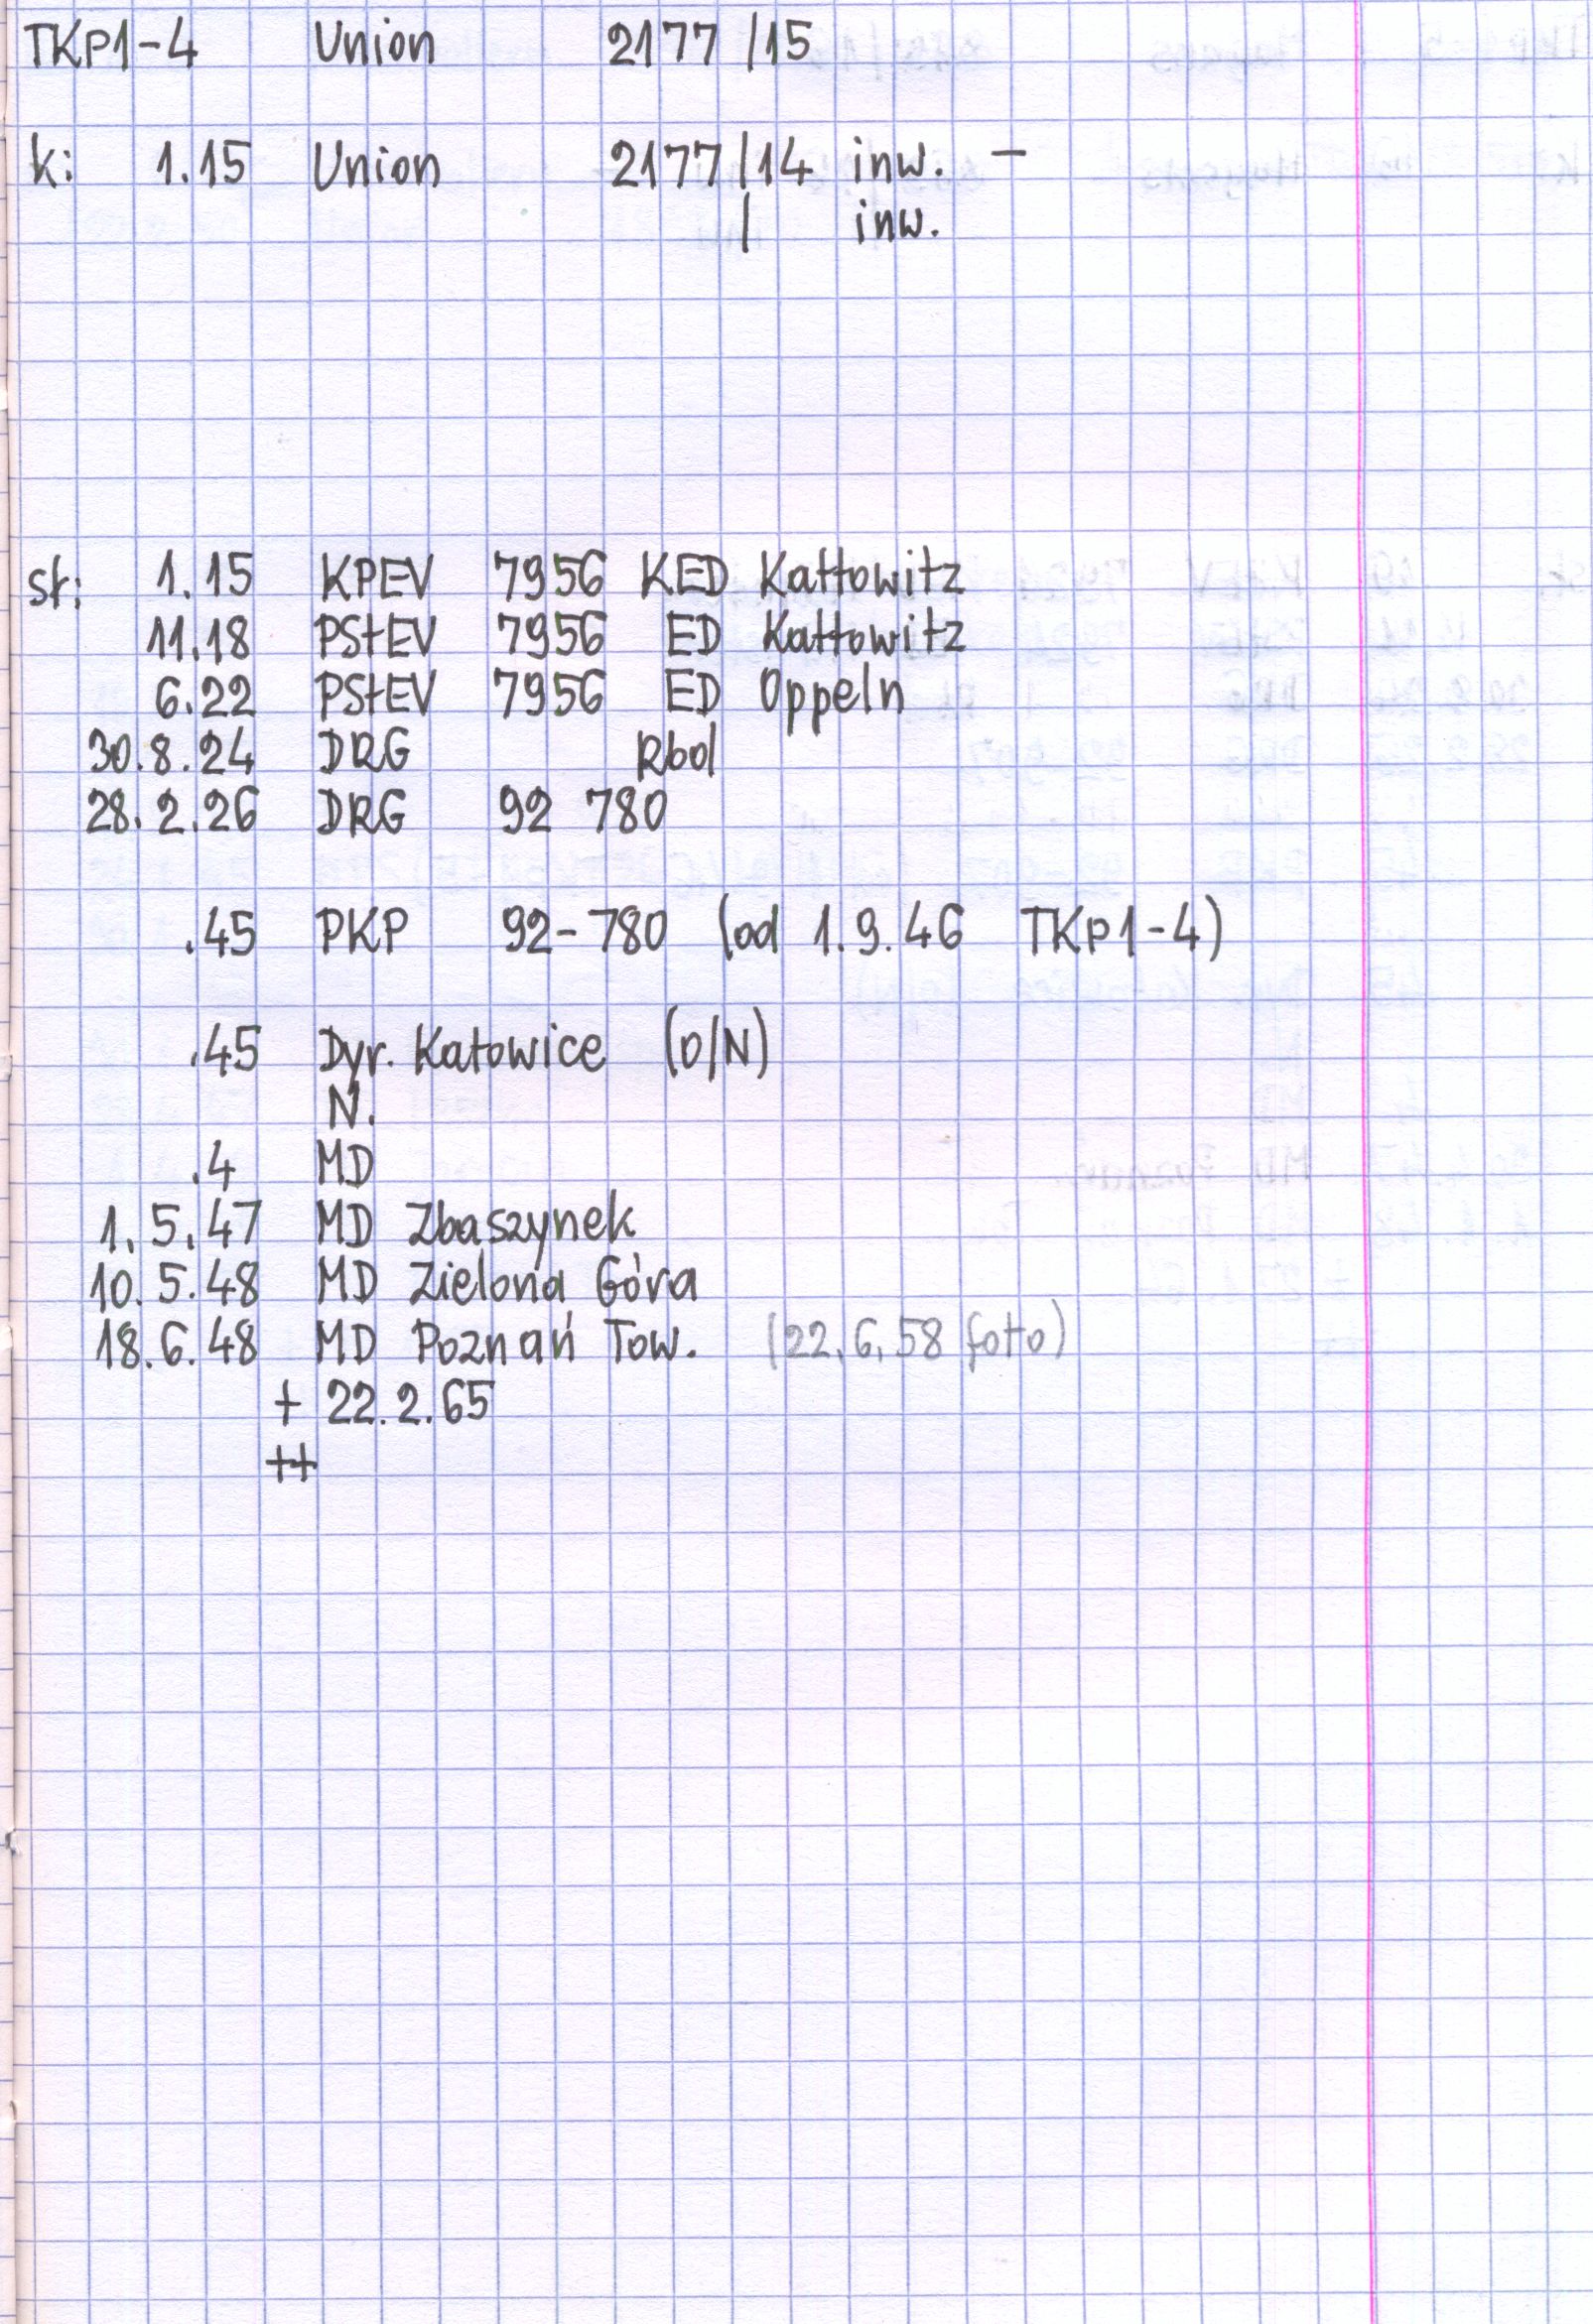 TKp1-4 Union 2177/15
k: 1.15 Union 2177/14 inw. –
/ inw.
st: 1.15 KPEV 7956 KED Kattowitz
11.18 PStEV 7956 ED Kattowitz
6.22 PStEV 7956 ED Oppeln
30.8.24 DRG Rbd
28.2.26 DRG 92 780
.45 PKP 92-780 (od 1.9.46 TKp1-4)
.45 Dyr. Katowice (D/N)
N.
.4 MD
1.5.47 MD Zbaszynek
10.5.48 MD Zielona Góra
18.6.48 MD Poznań Tow. (22.6.58 foto)
+ 22.2.65
++